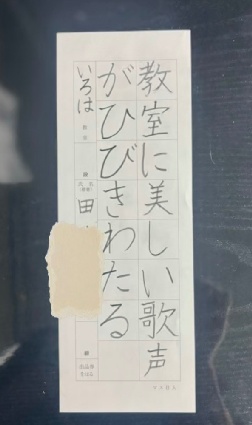 教室に美しい歌声
がひびきわたる
いろは
田